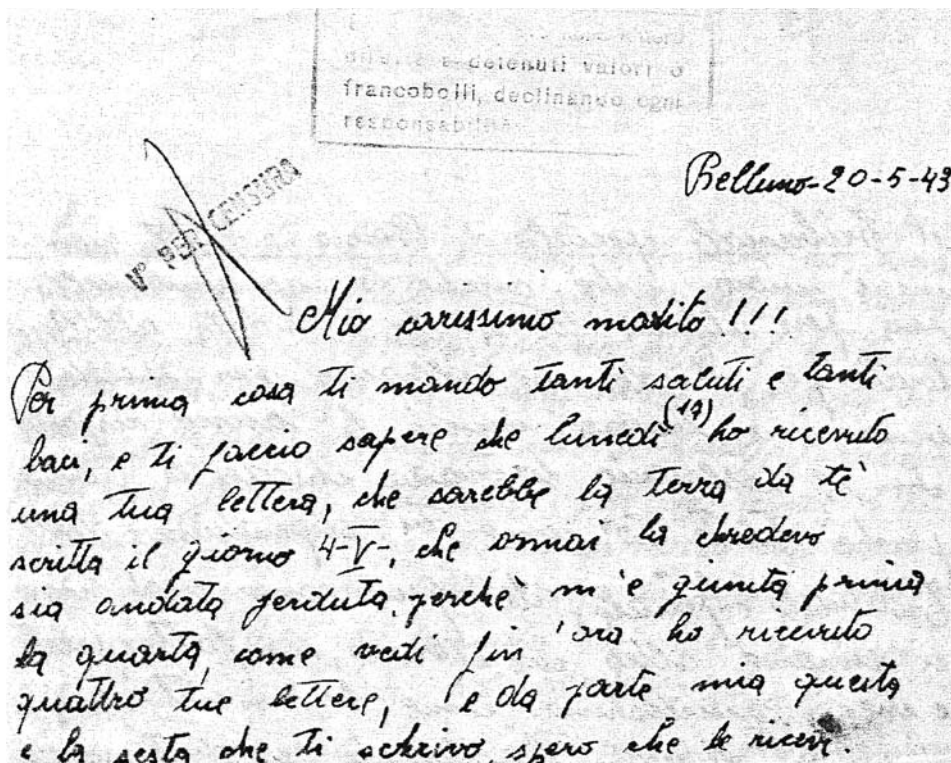 detenuti valori o
francobolli, declinando ogni
responsabilità
V° PER CENSURA
Belluno-20-5-43
Mio carissimo marito!!!
Per prima cosa ti mando tanti saluti e tanti
baci, e ti faccio sapere che lunedì (17) ho ricevuto
una tua lettera, che sarebbe la terza da tè
scritta il giorno 4-V-, che ormai la chredevo
sia andata perduta, perchè m'è giunta prima
la quarta, come vedi fin'ora ho ricevuto
quattro tue lettere, e da parte mia questa
e la sesta che ti schrivo, spero che le riceve.